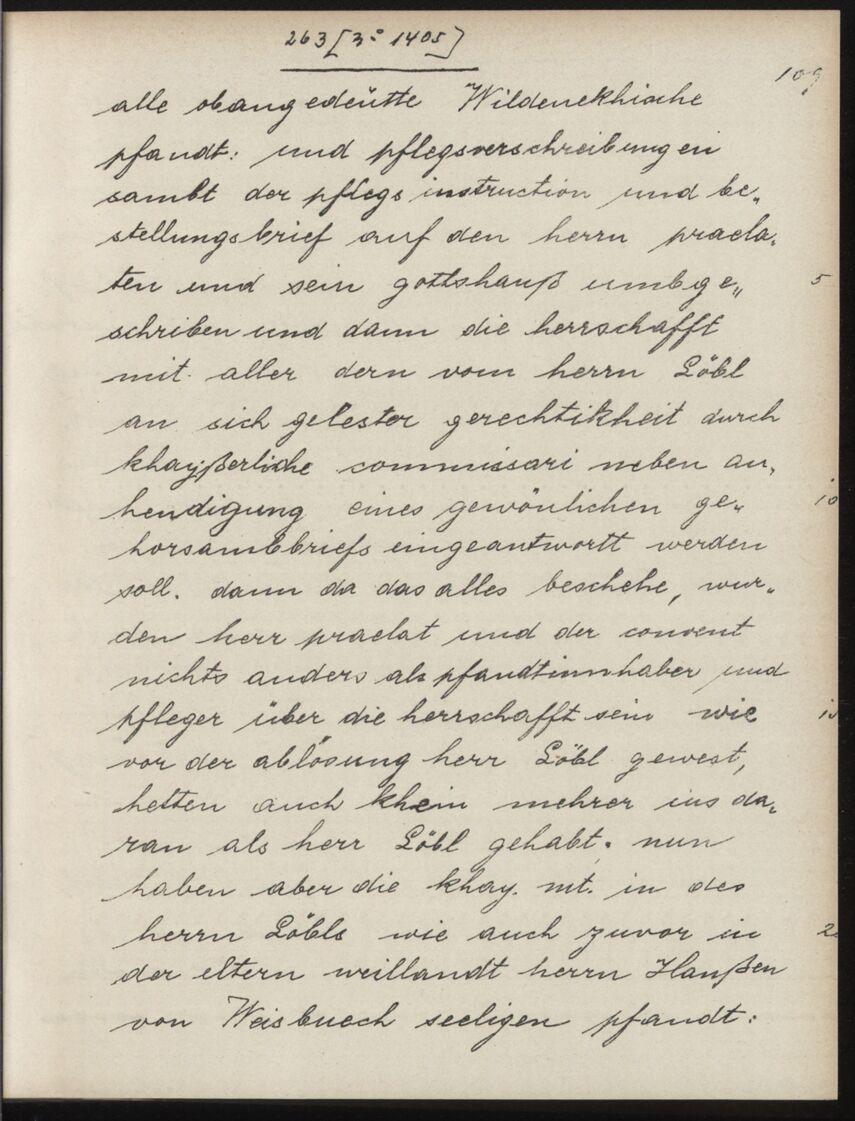 263 [3° 1405]
109
alle obangedeütte Wildenekhische
pfandt: und pflegsverschreibungen
sambt der pflegsinstruction und be„
stellungsbrief auf den herrn praela„
ten und sein gottshauß umbge„ 5
schriben und dann die herrschafft
mit aller dern vom herrn Löbl
an sich gelester gerechtikheit durch
khayßerliche commissari neben an„
hendigung eines gewönlichen ge„ 10
horsambbriefs eingeantwortt werden
soll. dann da das alles beschehe, wur„
den herr praelat und der convent
nichts anders als pfandtinnhaber und
pfleger über die herrschafft sein wie 15
vor der ablösung herr Löbl gewest,
hetten auch khein mehrer ius da„
ran als herr Löbl gehabt. nun
haben aber die khay. mt. in des
herrn Löbls wie auch zuvor in 20
der eltern weillandt herrn Hanßen
von Weisbuech seeligen pfandt: